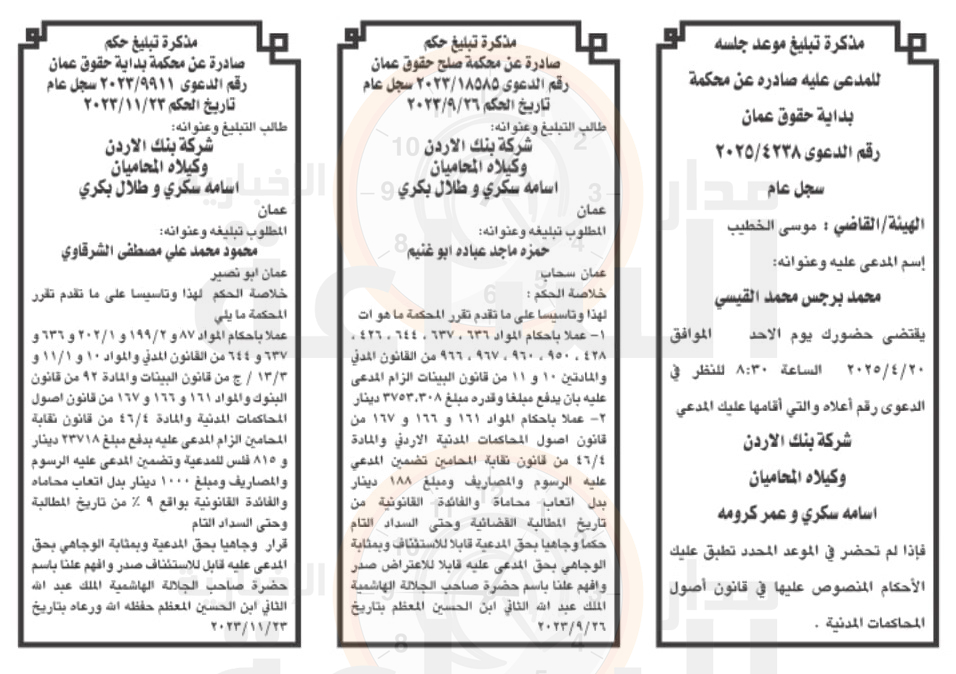 مذكرة تبليغ موعد جلسه
للمدعى عليه صادره عن محكمة
بداية حقوق عمان
رقم الدعوى ٢٠٢٥/٤٢٣٨
سجل عام
الهيئة/القاضي : موسى الخطيب
إسم المدعى عليه وعنوانه:
محمد برجس محمد القيسي
يقتضى حضورك يوم الاحد الموافق
٢٠٢٥/٤/٢٠ الساعة ٨:٣٠ للنظر في
الدعوى رقم أعلاه والتي أقامها عليك المدعي
شركة بنك الاردن
وكيلاه المحاميان
اسامه سكري و عمر كرومه
فإذا لم تحضر في الموعد المحدد تطبق عليك
الأحكام المنصوص عليها في قانون أصول
المحاكمات المدنية .
مذكرة تبليغ حكم
صادرة عن محكمة صلح حقوق عمان
رقم الدعوى ٢٠٢٣/١٨٥٨٥ سجل عام
تاريخ الحكم ٢٠٢٣/٩/٢٦
طالب التبليغ وعنوانه:
شركة بنك الاردن
وكيلاه المحاميان
اسامه سكري و طلال بكري
عمان
المطلوب تبليغه وعنوانه:
حمزه ماجد عباده ابو غنيم
عمان سحاب
خلاصة الحكم :
لهذا وتاسيسا على ما تقدم تقرر المحكمة ما هو ات
١- عملا بأحكام المواد ٦٣٦ ، ٦٣٧ ، ٦٤٤ ، ٤٢٦ ،
٤٢٨ ، ٩٥٠ ، ٩٦٠ ، ٩٦٧ ، ٩٦٦ من القانون المدني
والمادتين ١٠ و ١١ من قانون البينات الزام المدعى
عليه بان يدفع مبلغا وقدره مبلغ ٣٧٥٣,٣٠٨ دينار
٢- عملا باحكام المواد ١٦١ و ١٦٦ و ١٦٧ من
قانون اصول المحاكمات المدنية الاردني والمادة
٤٦/٤ من قانون نقابة المحامين تضمين المدعي
عليه الرسوم والمصاريف ومبلغ ١٨٨ دينار
بدل اتعاب محاماة والفائدة القانونية من
تاريخ المطالبة القضائية وحتى السداد التام
حكما وجاهيا بحق المدعية قابلا للاستئناف وبمثابة
الوجاهي بحق المدعى عليه قابلا للاعتراض صدر
وافهم علنا باسم حضرة صاحب الجلالة الهاشمية
الملك عبد الله الثاني ابن الحسين المعظم بتاريخ
٢٠٢٣/٩/٢٦
مذكرة تبليغ حكم
صادرة عن محكمة بداية حقوق عمان
رقم الدعوى ٢٠٢٣/٩٩١١ سجل عام
تاريخ الحكم ٢٠٢٣/١١/٢٣
طالب التبليغ وعنوانه:
شركة بنك الاردن
وكيلاه المحاميان
اسامه سكري و طلال بكري
عمان
المطلوب تبليغه وعنوانه:
محمود محمد علي مصطفى الشرقاوي
عمان ابو نصير
خلاصة الحكم لهذا وتاسيسا على ما تقدم تقرر
المحكمة ما يلي
عملا باحكام المواد ٨٧ و ١٩٩/٢ و ٢٠٢/١ و ٦٣٦ و
٦٣٧ و ٦٤٤ من القانون المدني والمواد ١٠ و ١١/١ و
١٣/٣ / ج من قانون البينات والمادة ٩٢ من قانون
البنوك والمواد ١٦١ و ١٦٦ و ١٦٧ من قانون اصول
المحاكمات المدنية والمادة ٤٦/٤ من قانون نقابة
المحامين الزام المدعى عليه بدفع مبلغ ٢٣٧١٨ دينار
و ٨١٥ فلس للمدعية وتضمين المدعى عليه الرسوم
والمصاريف ومبلغ ١٠٠٠ دينار بدل اتعاب محاماه
والفائدة القانونية بواقع ٩ ٪ من تاريخ المطالبة
وحتى السداد التام
قرار وجاهيا بحق المدعية وبمثابة الوجاهي بحق
المدعى عليه قابل للاستئناف صدر وافهم علنا باسم
حضرة صاحب الجلالة الهاشمية الملك عبد الله
الثاني ابن الحسين المعظم حفظه الله ورعاه بتاريخ
٢٠٢٣/١١/٢٣